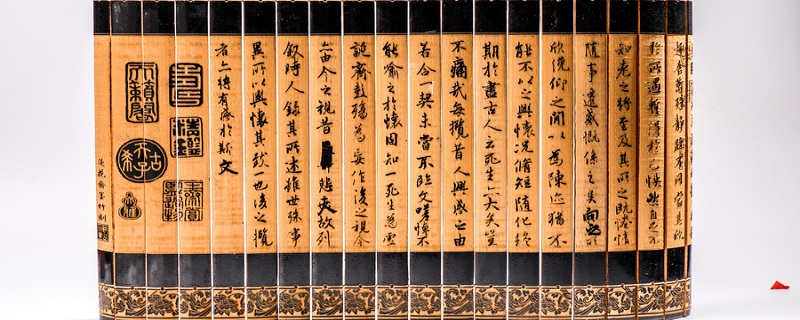 趣舍萬殊靜躁不同當其欣
於所遇暫得於己快然自足不
知老之將至及其所之既惓情
隨事遷感慨係之矣向之所
欣俛仰之間以為陳迹猶不
能不以之興懷況脩短隨化終
期於盡古人云死生亦大矣豈
不痛哉每攬昔人興感之由
若合一契未嘗不臨文嗟悼不
能喻之於懷固知一死生為虛
誕齊彭殤為妄作後之視今
亦由今之視昔悲夫故列
敘時人錄其所述雖世殊事
異所以興懷其致一也後之攬
者亦將有感於斯文